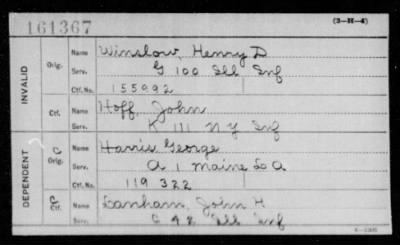 161367 (3-H-4)
INVALID Orig. Name Winslow, Henry D
Serv. G 100 Ill Inf
Ctf. No. 155992
Ctf. Name Hoff, John
Serv. K 111 N Y Inf
DEPENDENT C Orig. Name Harris George
Serv. A 1 Maine L A
Ctf. No. 119 322
C Ctf. Name Lanham, John H
Serv. C 48 Ill Inf